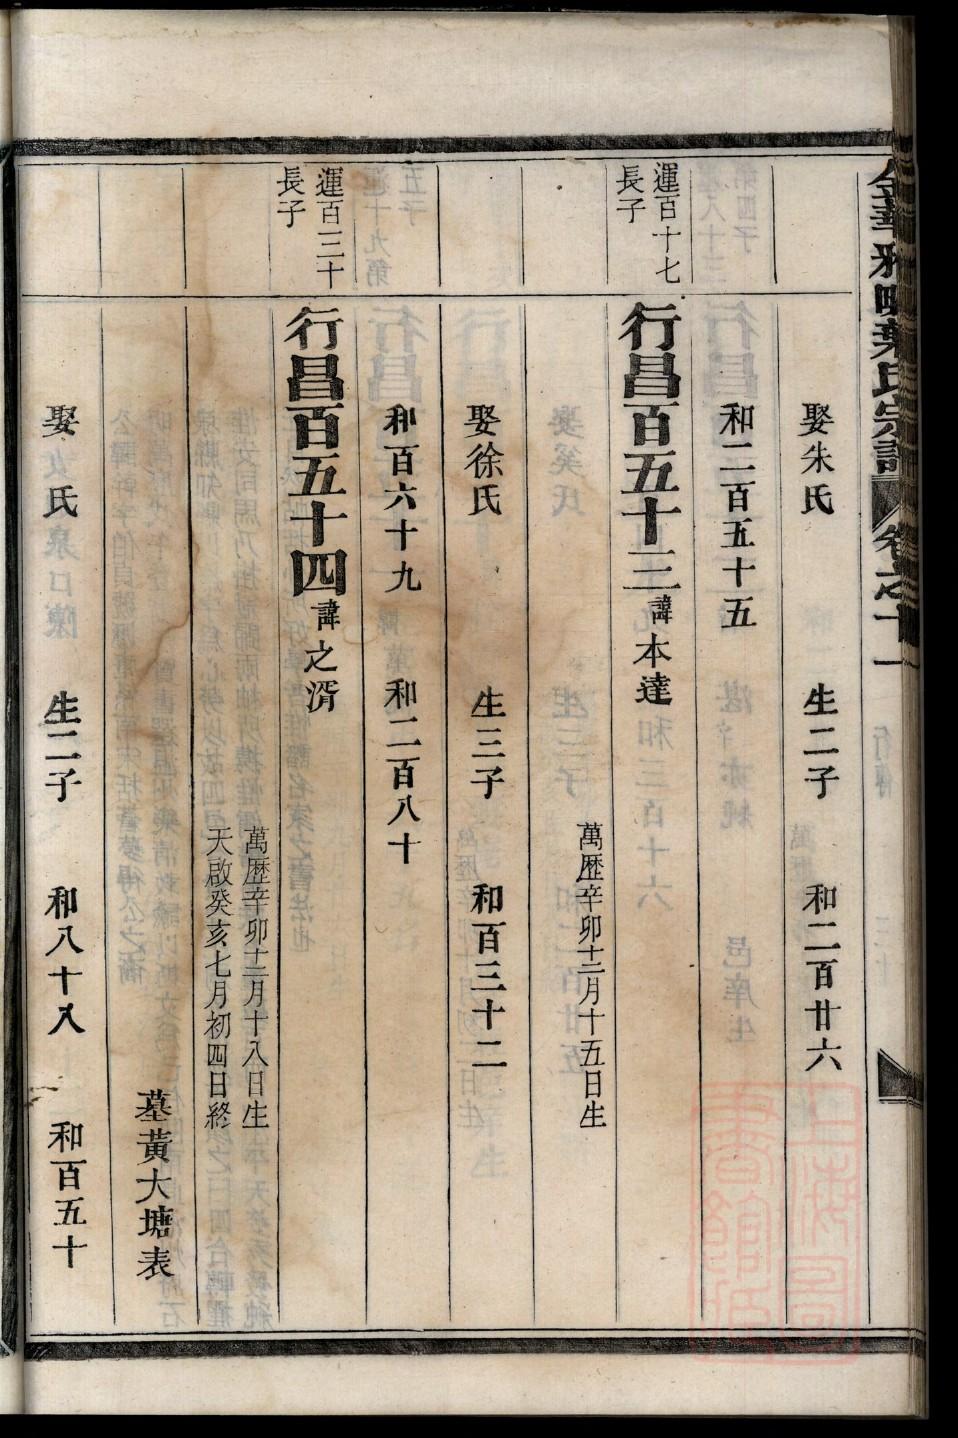 葉氏宗譜
卷之十一
娶朱氏 生二子 和二百廿六
和二百五十五
運百十七
長子
行昌百五十三 諱本達
萬歷辛卯十二月十五日生
娶徐氏 生三子 和百三十二
和百六十九 和二百八十
運百三十
長子
行昌百五十四 諱之湑
萬歷辛卯十二月十八日生
天啟癸亥七月初四日終
墓黃大塘表
娶 氏 生二子 和八十八 和百五十